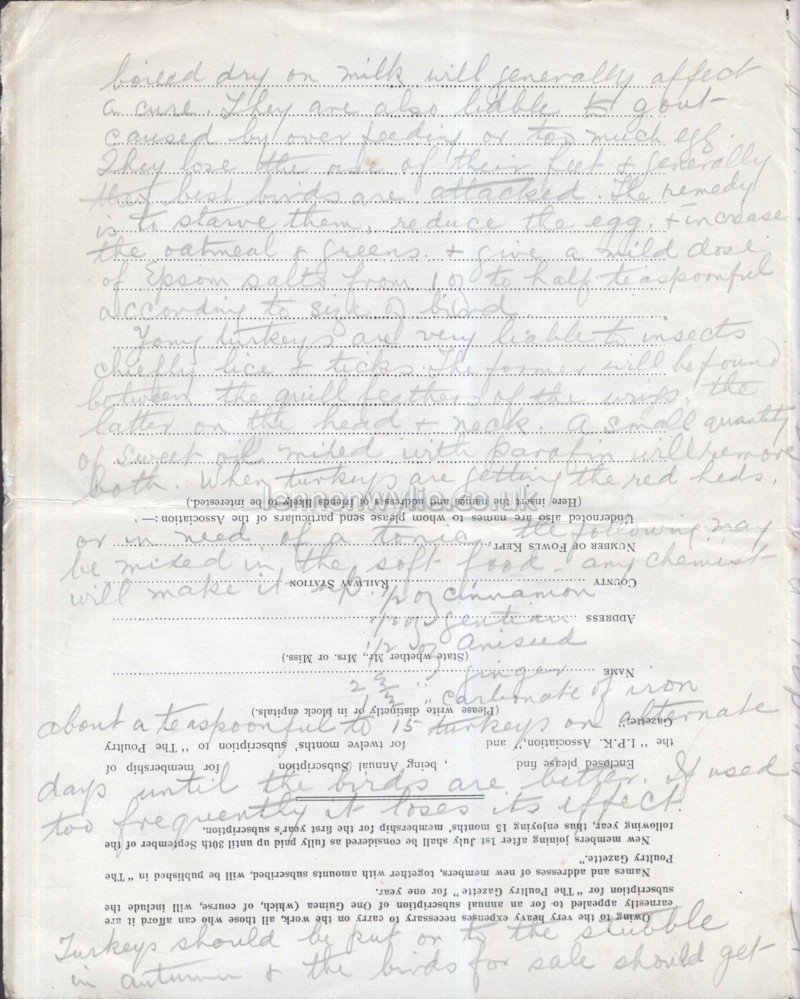 boiead dry on milk will generally affect
a cure. They are also liable to gout
caused by over feeding or too much egg.
They lose the use of their feet & generally
the best birds are attacked. The remedy
is to starve them, reduce the egg. & increase
the oatmeal & greens. & give a mild dose
of Epsom salts from to half teaspoonful
according to size of bird.
Yong turkeys are very liable to insects
chiefly lice & ticks. The former will be found
between the quill feathers of the wings, the
latter on the head & neck. A small quantity
of sweet oil mixed with parafin will remove
both. When turkeys are getting the red heds,
or in need of a tonic, the following may
be mixed in the soft food any chemist
will make it up.
1/2 oz cinnamon
1/2 oz gentian
1/2 oz Aniseed
ginger
" carbonate of iron
about a teaspoonful to 15 turkeys on alternate
days until the birds are better. If used
too frequently it loses its effect.
Turkeys should be put on to the stubble
in autumn & the birds for sale should get
lennonwylie.co.uk
Owing to the very heavy expenses necessary to carry on the work, all those who can afford it are
earnestly appealed to for an annual subscription of One Guinea (which, of course, will include the
subscription for "The Poultry Gazette" for one year.
Names and addresses of new members, together with amounts subscribed, will be published in "The
Poultry Gazette."
New members joining after 1st July shall be considered as fully paid up until 30th September of the
following year, thus enjoying 15 months' membership for the first year's subscription.
Enclosed please find , being Annual Subscription for membership of
the "I.P.K. Association," and for twelve months' subscription to "The Poultry
Gazette."
(Please write distinctly or in block capitals).
NAME
(State whether Mr., Mrs. or Miss.)
ADDRESS
COUNTY RAILWAY STATION
NUMBER OF FOWLS KEPT
Undernoted also are names to whom please send particulars of the Association:—
(Here insert the names and addresses of friends likely to be interested.)